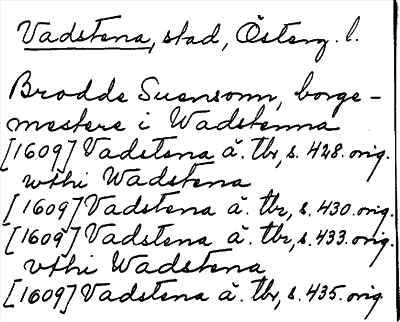 Vadstena, stad, Österg. l.
Brodde Suensonn, borge-
mestere i Wadstenna
[1609] Vadstena ä. tbr, s. 428. orig.
wthi Wadstena
[1609] Vadstena ä. tbr, s. 430. orig.
[1609] Vadstena ä. tbr, s. 433. orig.
vthi Wadstena
[1609] Vadstena ä. tbr, s. 435. orig